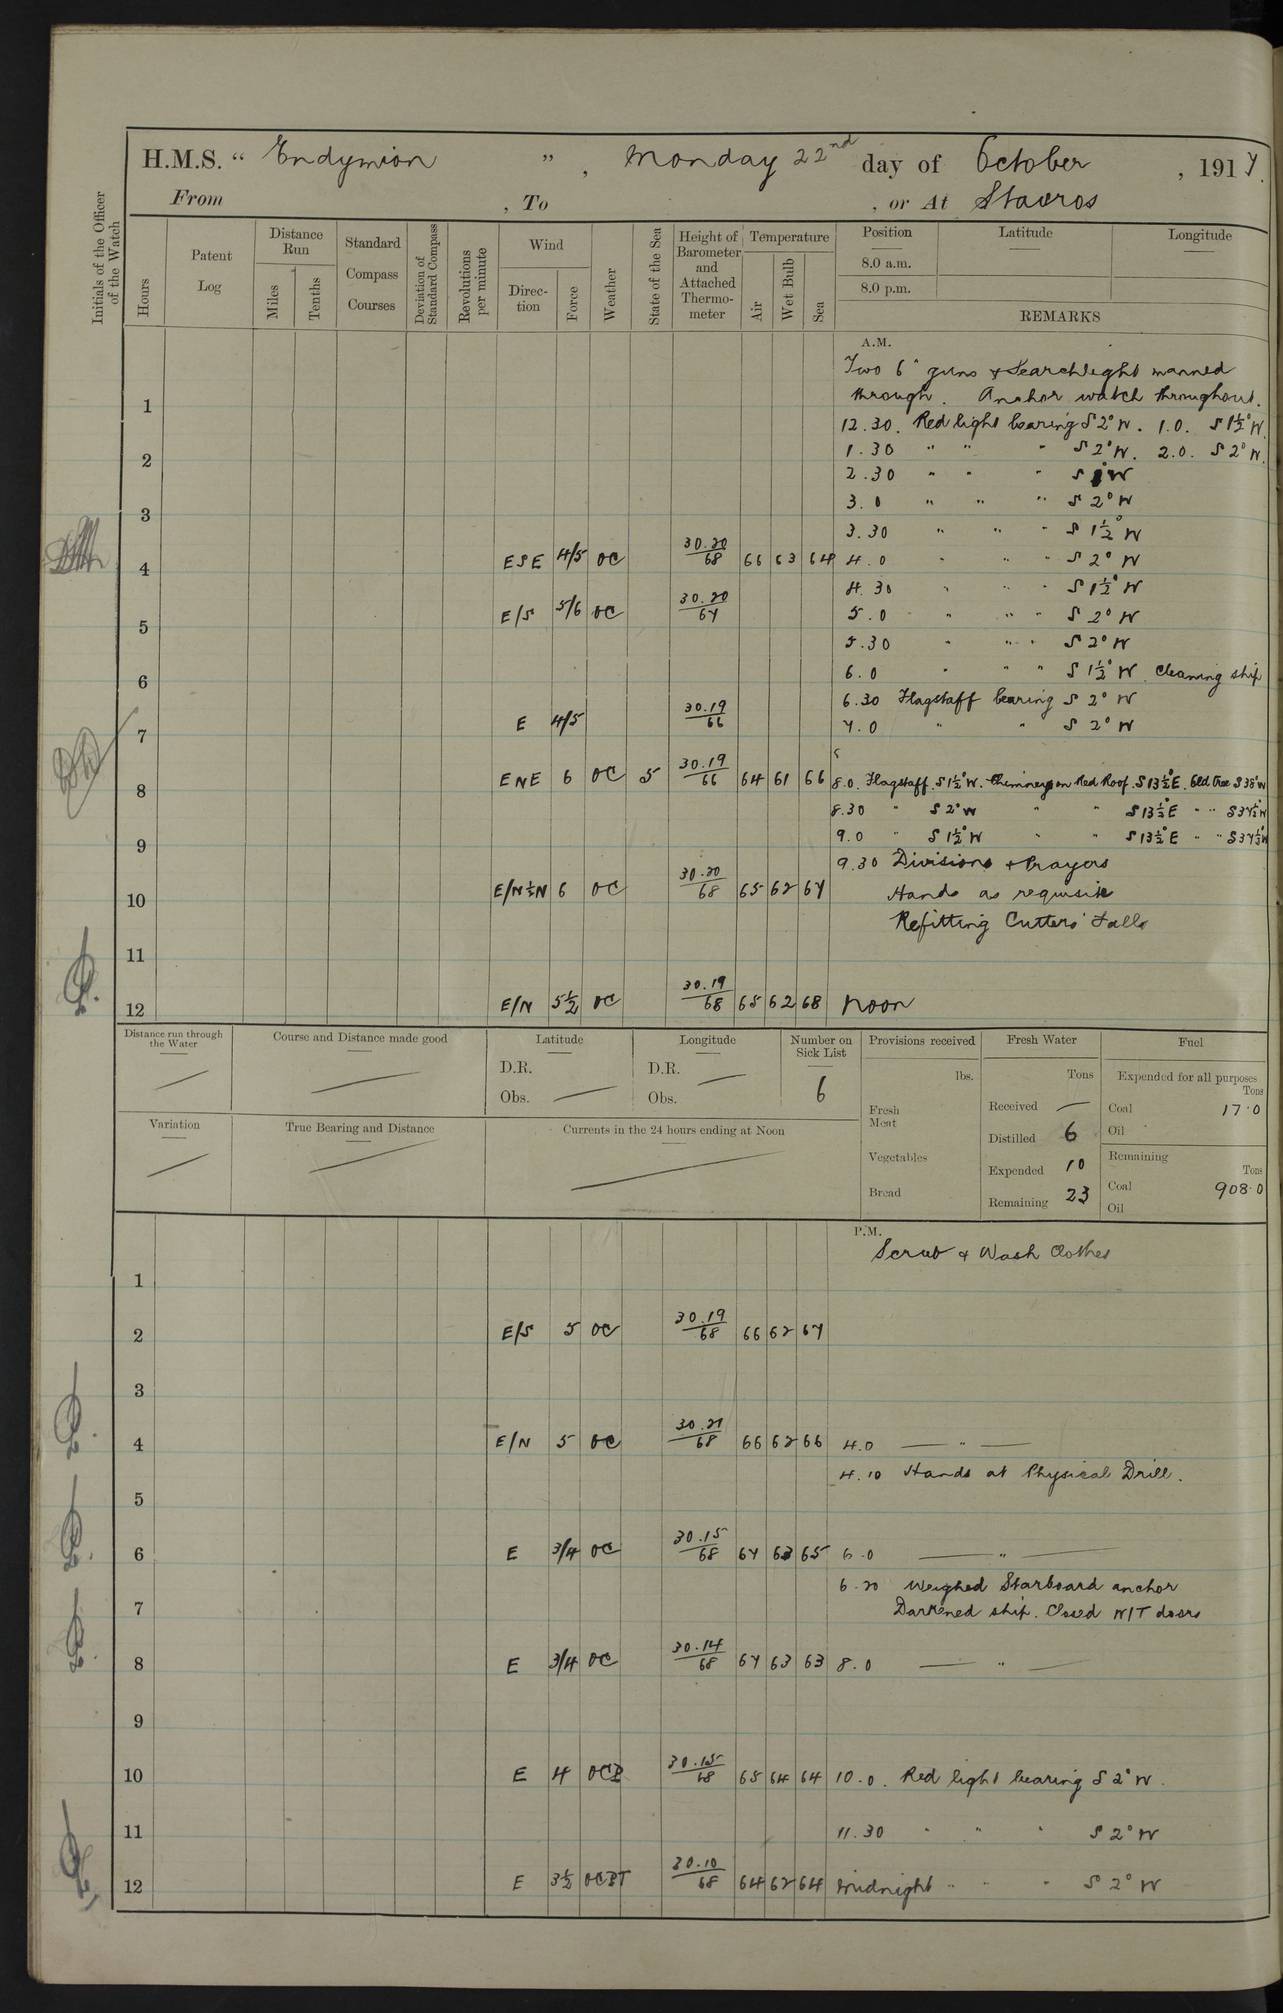 H.M.S. " Endymion ", Monday 22nd day of October, 1917.
From , To , or At Stavros
Initials of the Officer of the Watch
Hours
Patent Log
Distance Run
Miles
Tenths
Standard Compass Courses
Deviation of Standard Compass
Revolutions per minute
Wind
Direction
Force
Weather
State of the Sea
Height of Barometer and Attached Thermometer
Temperature
Air
Wet Bulb
Sea
Position Latitude Longitude
8.0 a.m.
8.0 p.m.
REMARKS
A.M.
Two 6" guns & Searchlight manned
through. Anchor watch throughout.
1
12.30. Red light bearing S 2° W. 1.0. S 1½° W.
1.30 " " " S 2° W. 2.0. S 2° W.
2
2.30 " " " S W
3.0 " " " S 2° W
3
3.30 " " " S 1½° W
4 ESE 4/5 OC 30.20/68 66 63 64 4.0 " " " S 2° W
4.30 " " " S 1½° W
5 E/S 5/6 OC 30.20/67 5.0 " " " S 2° W
5.30 " " " S 2° W
6 6.0 " " " S 1½° W. Cleaning ship
6.30 Flagstaff bearing S 2° W
7 E 4/5 30.19/66 7.0 " " S 2° W
8 ENE 6 OC 5 30.19/66 64 61 66 8.0. Flagstaff. S 1½° W. Chimney on Red Roof. S 13½° E. Old tree S 38° W
8.30 " S 2° W " " S 13½° E " " S 37½° W
9 9.0 " S 1½° W " " S 13½° E " " S 37½° W
9.30 Divisions & Prayers
10 E/N½N 6 OC 30.20/68 65 62 67 Hands as requisite
Refitting Cutters' Falls
11
12 E/N 5½ OC 30.19/68 65 62 68 Noon
Distance run through the Water —
Course and Distance made good —
Latitude
D.R.
Obs. —
Longitude
D.R. —
Obs.
Number on Sick List
6
Provisions received
lbs.
Fresh Meat
Vegetables
Bread
Fresh Water
Tons
Received —
Distilled 6
Expended 10
Remaining 23
Fuel
Expended for all purposes
Tons
Coal 17.0
Oil
Remaining
Tons
Coal 908.0
Oil
Variation —
True Bearing and Distance —
Currents in the 24 hours ending at Noon —
P.M.
Scrub & Wash Clothes
1
2 E/S 5 OC 30.19/68 66 62 67
3
4 E/N 5 OC 30.21/68 66 62 66 4.0 — " —
4.10 Hands at Physical Drill.
5
6 E 3/4 OC 30.15/68 67 63 65 6.0 — " —
6.20 Weighed Starboard anchor
7 Darkened ship. Closed W/T doors
8 E 3/4 OC 30.14/68 67 63 63 8.0 — " —
9
10 E 4 30.15/68 65 64 64 10.0. Red light bearing S 2° W.
11 11.30 " " " S 2° W
12 E 3½ 30.10/68 64 62 64 Midnight " " " S 2° W